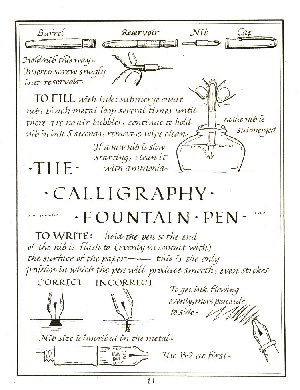 Barrel Reservoir Nib Cap
Hold nib this way.
Insert & screw snugly
into reservoir.
TO FILL with ink: submerge entire
nib, pinch metal loop several times until
there are no air bubbles, continue to hold
nib in ink 5 seconds, remove & wipe clean.
entire nib is
submerged
If a new nib is slow
starting, clean it
with ammonia.
·THE·
·CALLIGRAPHY
·FOUNTAIN·PEN·
TO WRITE: hold the pen so the end
of the nib is flush to (evenly in contact with)
the surface of the paper — this is the only
position in which the pen will produce smooth, even strokes
CORRECT INCORRECT
To get ink flowing
evenly, move pen side
to side -
Nib size is inscribed in the metal -
Use B-2 at first -
11